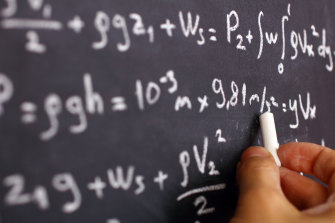 V₁/2 + ρgz₁ + Ws = P₂ + ∫w∫₀¹ρVx²dy
= ρgh = 10⁻³ m × 9,81 m/s² = yVx
z₁g + Ws + ρV₂²/2